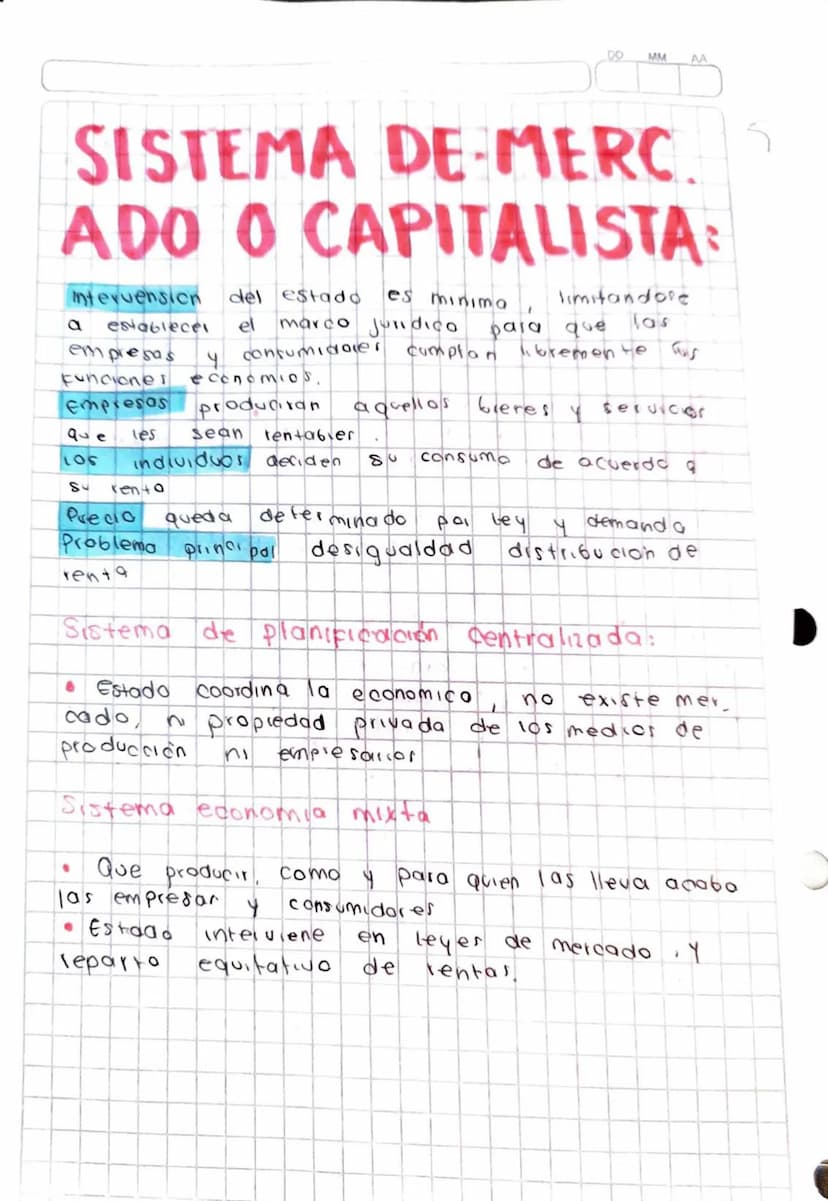 DD MM AA
SISTEMA DE·MERC.
ADO O CAPITALISTA:
Intervension del estado es minima, limitandose
a establecer el marco juridico para que las
empresas y consumidores cumplan libremente sus
funciones economios.
Empresas produciran aquellos bienes y servicios
que les sean rentables.
Los individuos deciden su consumo de acuerdo a
su renta
Precio queda determinado por ley y demanda
Problema principal desigualdad distribucion de
renta
Sistema de planificación centralizada:
• Estado coordina la economica, no existe mer-
cado, ni propiedad privada de los medios de
producción ni empresarios
Sistema economia mixta
• Que producir, como y para quien las lleva acabo
las empresar y consumidores
• Estado interviene en leyes de mercado, y
reparto equitativo de rentas.